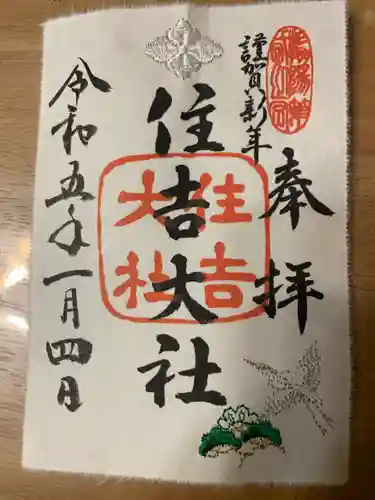 謹加賀新年
奉拝
住吉大社
住吉
大社
令和五年一月四日